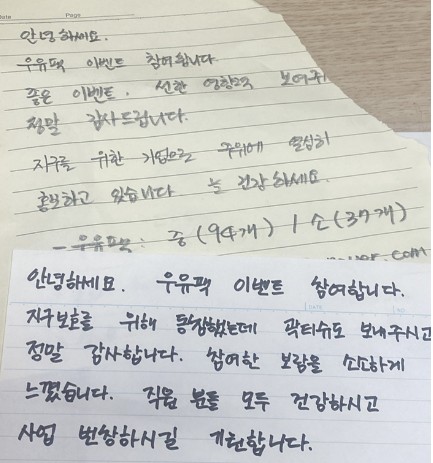 Date
Page
안녕하세요.
우유팩 이벤트 참여합니다
좋은 이벤트. 선한 영향력 보여주
정말 감사드립니다.
지구를 위한 기업으로 주위에 열심히
홍보하고 있습니다 늘 건강하세요.
- 우유팩 : 중 (94개) / 소 (37개)
.com
안녕하세요. 우유팩 이벤트 참여합니다.
지구보호를 위해 동참했는데 곽티슈도 보내주시고
정말 감사합니다. 참여한 보람을 소소하게
느꼈습니다. 직원 분들 모두 건강하시고
사업 번창하시길 기원합니다.